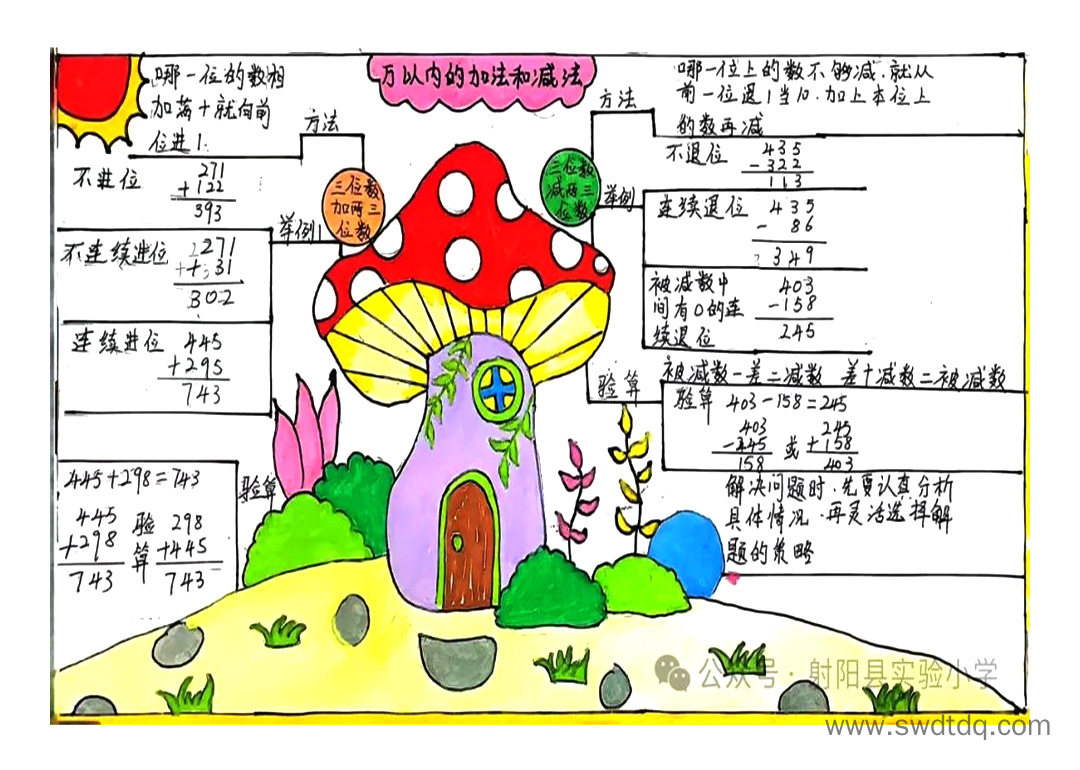 万以内的加法和减法
哪一位的数相
加满十就向前
位进1.
方法
三位数
加两三
位数
举例
不进位
271
+122
393
不连续进位
271
+ 31
302
连续进位
445
+295
743
验算
445+298=743
445
+298
743
验
算
298
+445
743
哪一位上的数不够减.就从
前一位退1当10.加上本位上
的数再减
方法
三位数
减两三
位数
举例
不退位
435
-322
113
连续退位
435
- 86
349
被减数中
间有0的连
续退位
403
-158
245
验算
被减数-差=减数 差+减数=被减数
验算 403-158=245
403
-245
158
或
245
+158
403
解决问题时.先要认真分析
具体情况.再灵活选择解
题的策略
公众号·射阳县实验小学
www.swdtdq.com